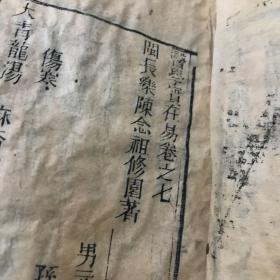 醫學實在易卷之七
閩長樂陳念祖修園著
男元
孫
傷寒
大青龍湯
麻杏